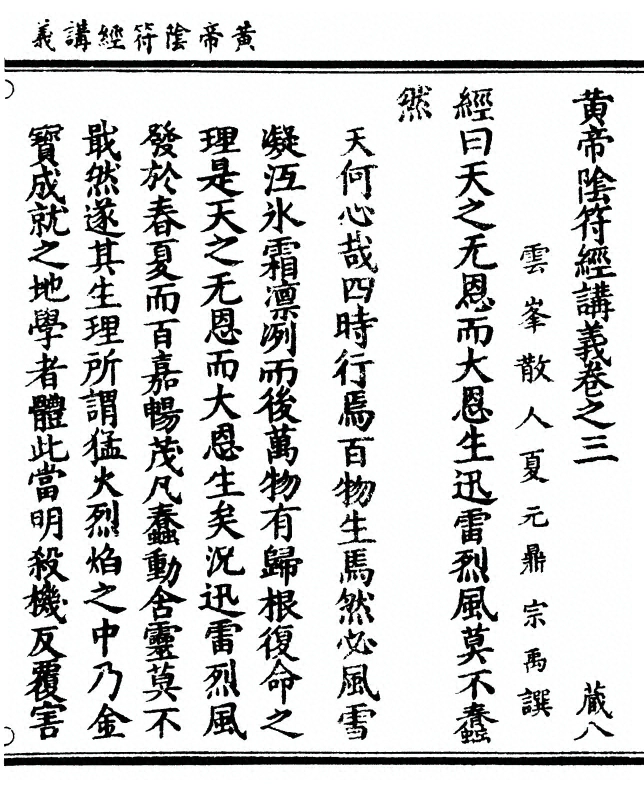 黃帝陰符經講義
黃帝陰符經講義卷之三　藏八
雲峯散人夏元鼎宗禹譔
經曰天之无恩而大恩生迅雷烈風莫不蠢
然
天何心哉四時行焉百物生焉然必風雪
凝沍氷霜凛冽而後萬物有歸根復命之
理是天之无恩而大恩生矣况迅雷烈風
發於春夏而百嘉暢茂凡蠢動含靈莫不
戢然遂其生理所謂猛火烈焰之中乃金
寶成就之地學者體此當明殺機反覆害